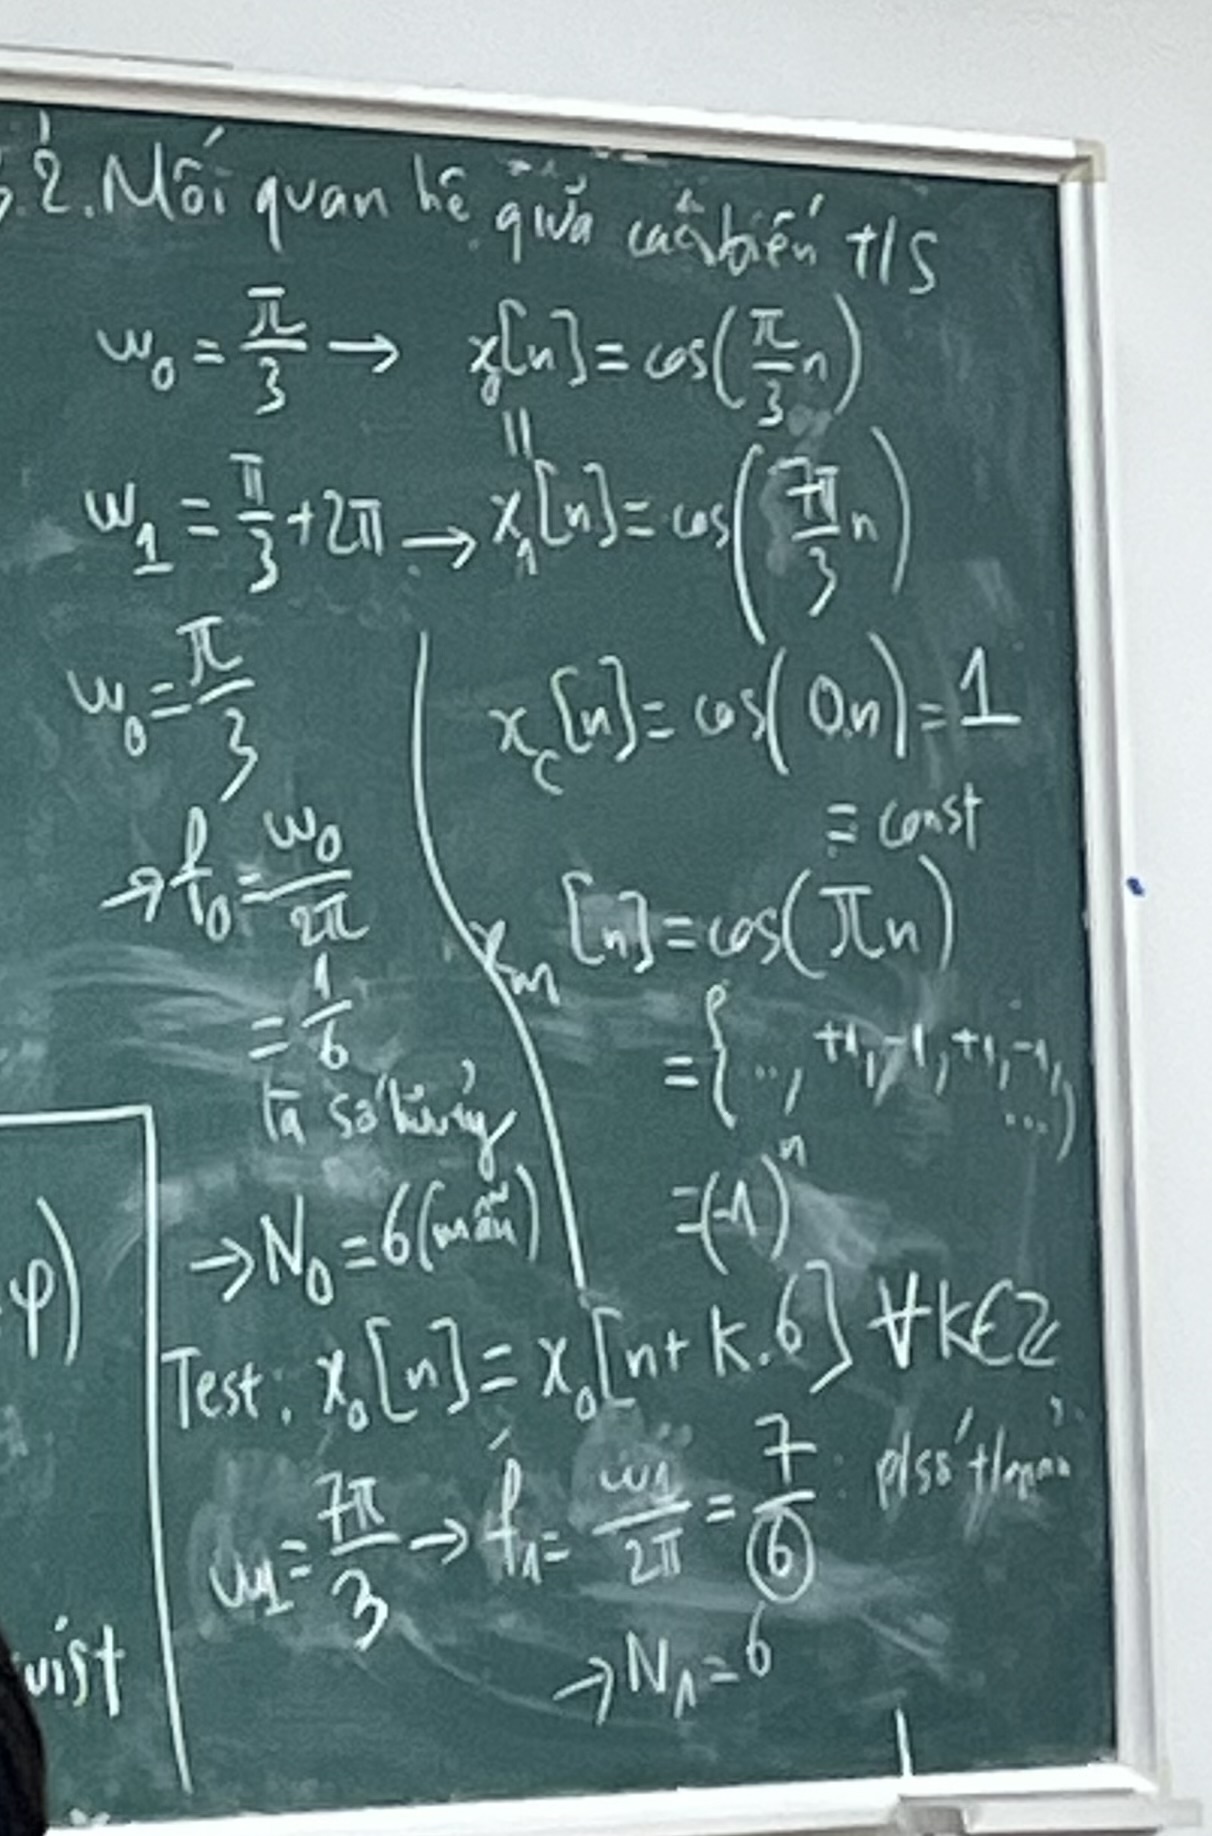 2. Mối quan hệ giữa các biến t/s
w₀ = π/3 → x₀[n] = cos(π/3 n)
=
w₁ = π/3 + 2π → x₁[n] = cos(7π/3 n)
w₀ = π/3
→ f₀ = w₀/2π
= 1/6
là số hữu tỷ
→ N₀ = 6 (mẫu)
x_c[n] = cos(0.n) = 1
= const
x_m[n] = cos(πn)
= {..., +1, -1, +1, -1, ...}
= (-1)ⁿ
Test: x₀[n] = x₀[n + k.6] ∀k∈Z
w₁ = 7π/3 → f₁ = w₁/2π = 7/6 : p/số t/giản
→ N₁ = 6
φ)
uist